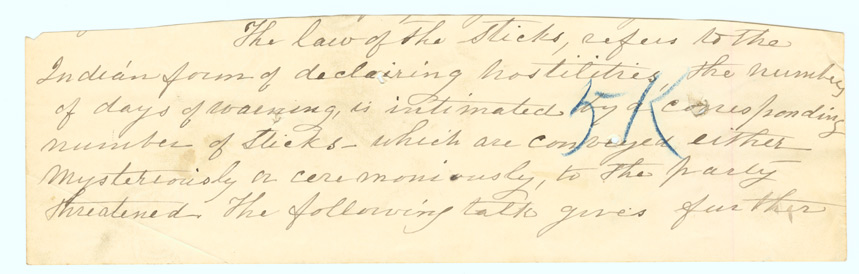 The law of the sticks, refers to the
Indian form of declairing hostilities, the number
of days of warning, is intimated by a corresponding
number of sticks - which are conveyed either
mysteriously or ceremoniously, to the party
threatened. The following talk gives further
5K